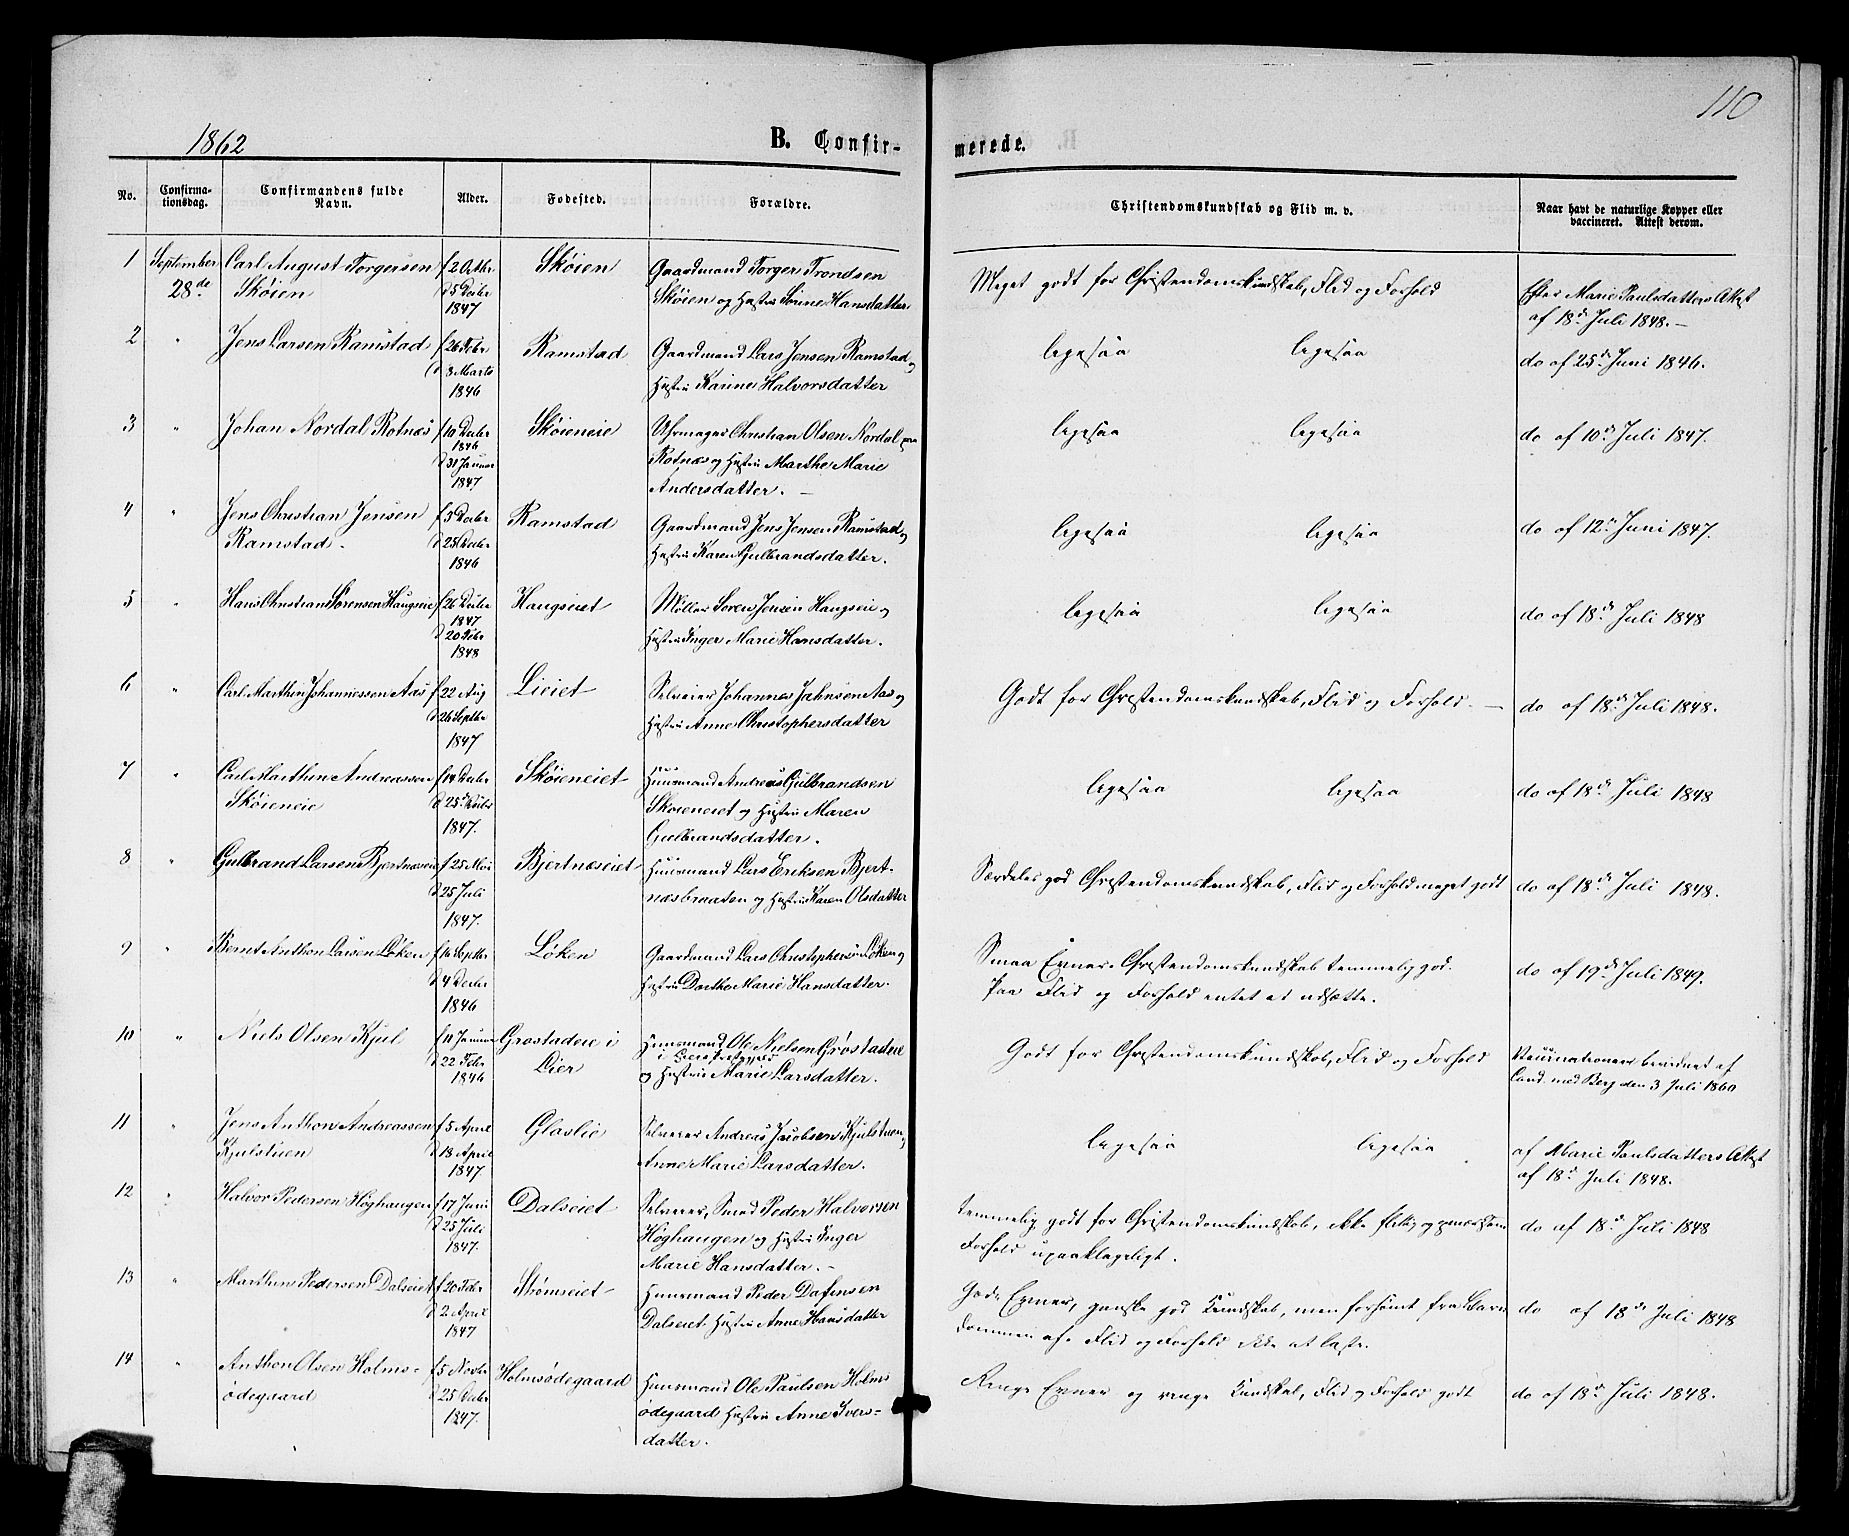 110
1862
B. Confir-
merede.
No.
Confirma-
tionsdag.
Confirmandens fulde
Navn.
Alder.
Fødested.
Forældre.
Christendomskundskab og Flid m. v.
Naar havt de naturlige Kopper eller
vaccineret. Attest derom.
1 September Carl August Torgersen f 2 Octbr Skøien Gaardmand Torger Trondsen
28de Skøien d 5 Decbr Skøien og Hustru Hansdatter
1847
Meget godt for Christendomskundskab, Flid og Forhold
Efter Marie Paulsdatters Attest
af 18de Juli 1848.-
2 " Jens Larsen Ramstad f 26 Febr Ramstad Gaardmand Lars Jensen Ramstad og
d 8 Marts Hustru Karine Halvorsdatter
1846
ligesaa ligesaa do af 25de Juni 1846.
3 " Johan Nordal Rotnæs f 10 Decbr Skøieneie Uhrmager Christian Olsen Nordal paa
1846 Rotnæs og Hustru Marthe Marie
d 31 Januar Andersdatter. -
1847
ligesaa ligesaa do af 10de Juli 1847.
4 " Jens Christian Jensen f 3 Decbr Ramstad Gaardmand Jens Jensen Ramstad og
Ramstad. d 25 Decbr Hustru Karen Gulbrandsdatter.
1846
ligesaa ligesaa do af 12te Juni 1847.
5 " Hans Christian Sørensen Haugseie f 26 Decbr Haugseiet Møller Søren Jensen Haugseie og
1847 Hustru Inger Marie Hansdatter.
d 20 Febr
1848
ligesaa ligesaa do af 18de Juli 1848
6 " Carl Marthin Johannessen Aas f 22 Aug Lieiet Selveier Johannes Jahnsen Aas og
d 26 Septbr Hustru Anne Christophersdatter
1847
Godt for Christendomskundskab, Flid og Forhold. - do af 18de Juli 1848.
7 " Carl Marthin Andreassen f 14 Decbr Skøieneiet Huusmand Andreas Gulbrandsen
Skøieneie d 25de Decbr Skøieneiet og Hustru Maren
1847. Gulbrandsdatter.
ligesaa ligesaa do af 18de Juli 1848
8 " Gulbrand Larsen Bjertnæseie f 25 Mai Bjertnæseiet Huusmand Lars Eriksen Bjert-
d 25 Juli næsbraaten og Hustru Karen Olsdatter
1847.
Særdeles god Christendomskundskab, Flid og Forhold meget godt do af 18de Juli 1848.
9 " Bernt Anthon Larsen Løken f 16 Septbr Løken Gaardmand Lars Christophersen Løken og
d 4 Decbr Hustru Dorthe Marie Hansdatter.
1846
Smaa Evner. Christendomskundskab temmelig god.
Paa Flid og Forhold intet at udsætte.
do af 19de Juli 1849.
10 " Niels Olsen Kjul f 11 Januar Grøstadeie i Huusmand Ole Nielsen Grøstadeie
d 22 Febr Lier i
1846 og Hustru Marie Larsdatter.
Godt for Christendomskundskab, Flid og Forhold
Vaccinationen bevidnet af
Cand. med Berg den 3 Juli 1860
11 " Jens Anthon Andreassen f 5 April Glaslie Selveier Andreas Jacobsen Kjulstuen og
Kjulstuen d 18 April Anne Marie Larsdatter.
1847
ligesaa ligesaa
af Marie Paulsdatters Attest
af 18de Juli 1848.
12 " Halvor Pedersen Høghaugen f 17 Juni Dalseiet Selveier, Smed Peder Halvorsen
d 25 Juli Høghaugen og Hustru Inger
1847. Marie Hansdatter. -
temmelig godt for Christendomskundskab, ikke flittig og opmærksom
Forhold upaaklageligt.
do af 18de Juli 1848
13 " Marthin Pedersen Dalseiet f 20 Febr Strømseiet Huusmand Peder Dafinsen
d 2 April Dalseiet Hustru Anne Hansdatter
1847
Gode Evner, ganske god Kundskab, men forsømt fra Barn
dommen af. Flid og Forhold ikke at laste.
do af 18de Juli 1848
14 " Anthon Olsen Holms- f 5 Novbr Holmsødegaard Huusmand Ole Paulsen Holms
ødegaard d 25 Decbr ødegaard Hustru Anne Ivers-
1847. datter.
Ringe Evner og ringe Kundskab, Flid og Forhold godt do af 18de Juli 1848.